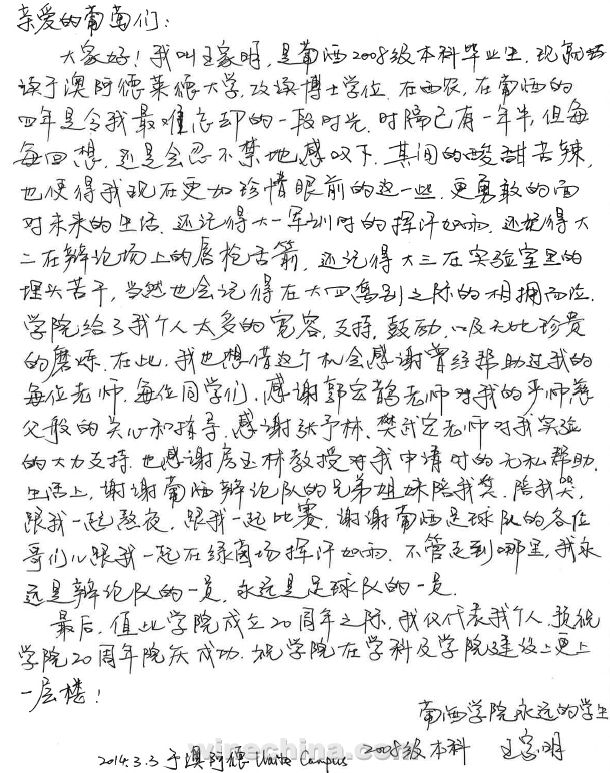 亲爱的葡萄们：
大家好！我叫王家明，是葡酒2008级本科毕业生，现就
读于澳阿德莱德大学，攻读博士学位。在西农，在葡酒的
四年是令我最难忘却的一段时光。时隔已有一年半，但每
每回想，还是会忍不禁地感叹下。其间的酸甜苦辣，
也使得我现在更加珍惜眼前的这一些，更勇敢的面
对未来的生活。还记得大一军训时的挥汗如雨，还记得大
二在辩论场上的唇枪舌箭，还记得大三在实验室里的
埋头苦干，当然也会记得在大四离别之际的相拥而泣。
学院给了我个人太多的宽容，支持，鼓励，以及无比珍贵
的磨炼。在此，我也想借这个机会感谢曾经帮助过我的
每位老师，每位同学们，感谢郭安鹊老师对我的严师慈
父般的关心和指导，感谢张予林、樊武定老师对我实验
的大力支持。也感谢房玉林教授对我申请时的无私帮助。
生活上，谢谢葡酒辩论队的兄弟姐妹陪我笑，陪我哭，
跟我一起熬夜，跟我一起比赛，谢谢葡酒足球队的各位
哥们儿跟我一起在绿茵场挥汗如雨。不管走到哪里，我永
远是辩论队的一员，永远是足球队的一员。
最后，值此学院成立20周年之际，我仅代表我个人，预祝
学院20周年院庆成功，祝学院在学科及学院建设上更上
一层楼！
葡酒学院永远的学生
2008级本科 王家明
2014.3.3 于澳阿德 Waite Campus
winechina.com